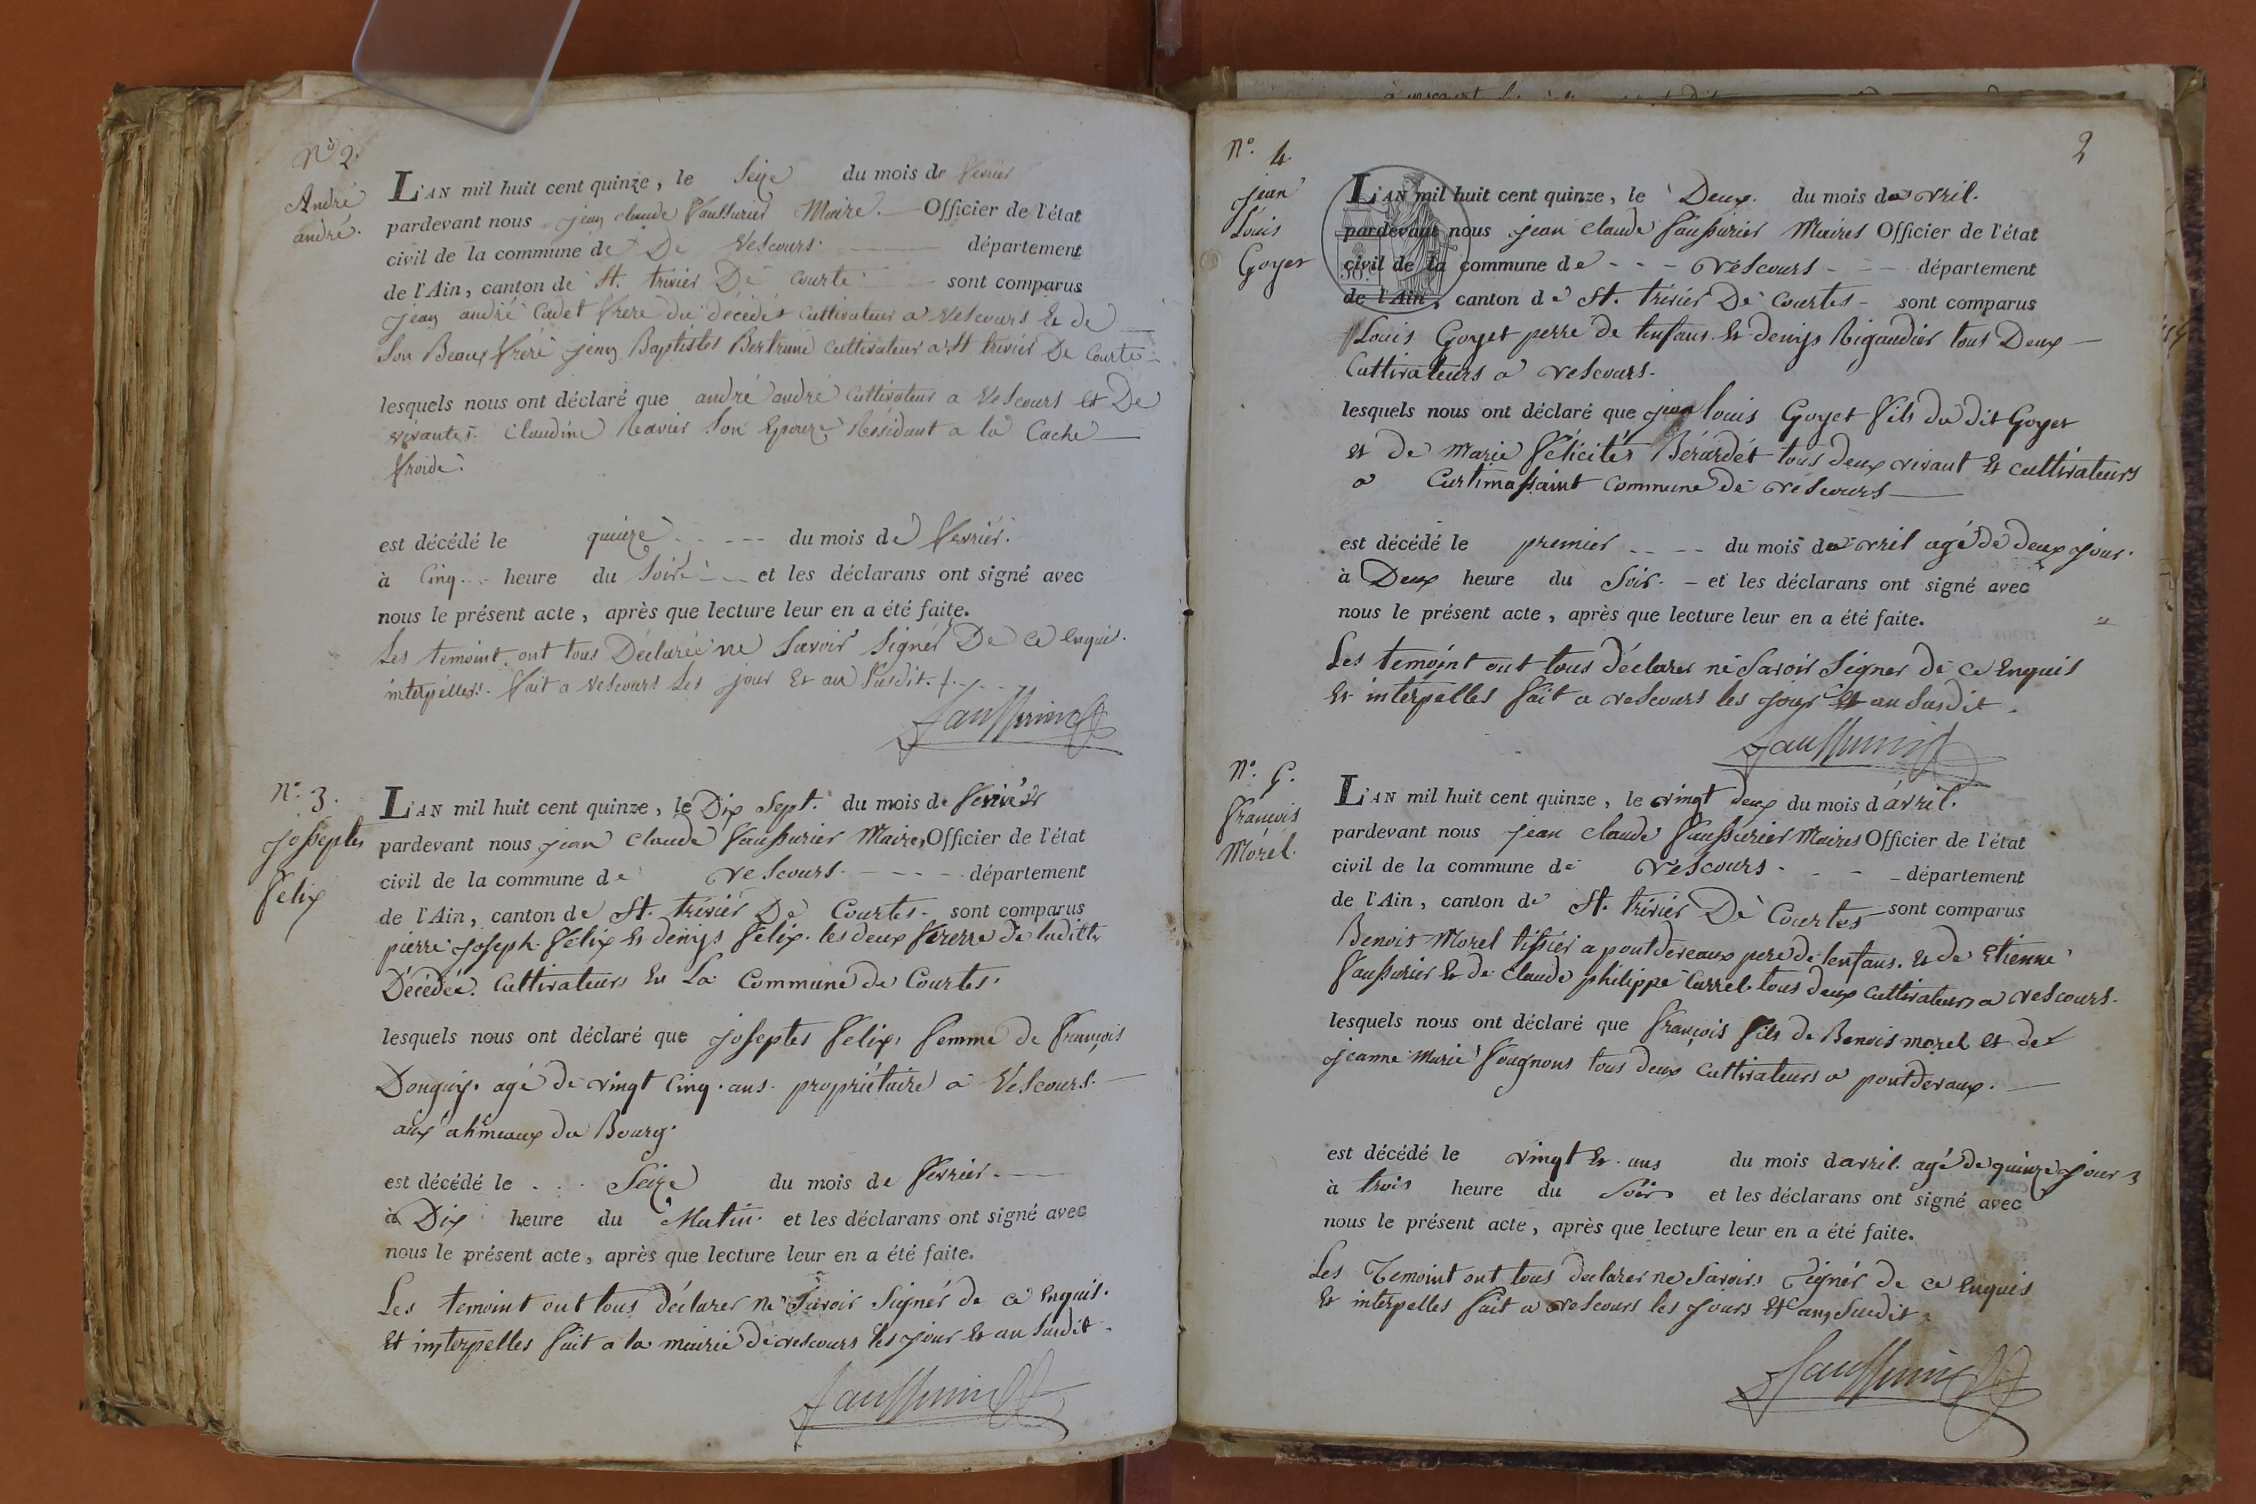 N° 2.
André
andré.
L'AN mil huit cent quinze, le Seize du mois de fevrier
pardevant nous jean claude faussurier Maire. Officier de l'état
civil de la commune de De Vescours. département
de l'Ain, canton de St. trivier De Courte sont comparus
jean andré Cadet frere du décédés Cultivateur a Vescours Et de
Son Beaux freré jean Baptistes Bertrand cultivateur a St trivier De Courte
lesquels nous ont déclaré que andré andré cultivateur a Vescours et De
vivantes. Claudine son Epouze Résidant a la Cache
froide.
est décédé le quinze du mois de fevrier.
à Cinq heure du Soire et les déclarans ont signé avec
nous le présent acte, après que lecture leur en a été faite.
Les temoint ont tous Déclaréé ne Savoir Signér De ce enquis.
interpéller. fait a Vescours Les jour Et an Susdit.
faussurier
N° 3.
josseptes
félix
L'AN mil huit cent quinze, le Dix Sept. du mois de fevrier
pardevant nous jean Claude faussurier Maires Officier de l'état
civil de la commune de vescours. département
de l'Ain, canton de St. trivier De Courtes sont comparus
pierre joseph félix Et denys félix. les deux frerre de laditte
Décédée. Cultivateurs En La Commune de Courtes.
lesquels nous ont déclaré que josseptes félix, femme de françois
Donguy. agé de vingt Cinq. ans. propriétaire a Vescours.
aux du Bourg.
est décédé le Seize du mois de février.
à Dix heure du Matin. et les déclarans ont signé avec
nous le présent acte, après que lecture leur en a été faite.
Les temoint ont tous déclarer ne Savoir Signér de ce enquis.
Et interpelles fait a la mairie de vescours les jour Et an Susdit.
faussurier
2
N° 4.
jean
Louis
Goyet
L'AN mil huit cent quinze, le Deux. du mois davril.
pardevant nous jean Claude faussurier Maires Officier de l'état
civil de la commune de vescours département
de l'Ain, canton de St. trivier De Courtes sont comparus
Louis Goyet perre de lenfans. Et denys Rigaudier tous Deux
Cultivateurs a vescours.
lesquels nous ont déclaré que jean louis Goyet fils du dit Goyet
et de Marie félicités Bérardét tous deux vivant Et cultivateurs
a Curtimassaint Commune de vescours
est décédé le premier du mois davril agé de deux jour.
à Deux heure du Soir. et les déclarans ont signé avec
nous le présent acte, après que lecture leur en a été faite.
Les temoint ont tous déclarer ne Savoir Signer de ce Enquis
Et interpelles fait a vescours les jour Et an Susdit.
faussurier
N° 5.
françois
Morel.
L'AN mil huit cent quinze, le vingt deux du mois davril.
pardevant nous jean Claude faussurier Maires Officier de l'état
civil de la commune de vescours. département
de l'Ain, canton de St. trivier De Courtes sont comparus
Benoit Morel tissier a pontdeveaux pere de lenfans. Et de Etienne
faussurier Et de Claude philippe Currel. tous deux cultivateurs a vescours.
lesquels nous ont déclaré que françois fils de Benois morel et de
jeanne Marie fougnous tous deux cultivateurs a pontdevaux.
est décédé le vingt Et uns du mois davril. agé de quinze jours
à trois heure du Soir et les déclarans ont signé avec
nous le présent acte, après que lecture leur en a été faite.
Les Temoint ont tous declarer ne Savoirs Signér de ce Enquis
Et interpelles fait a vescours les jours Et an Susdit.
faussurier